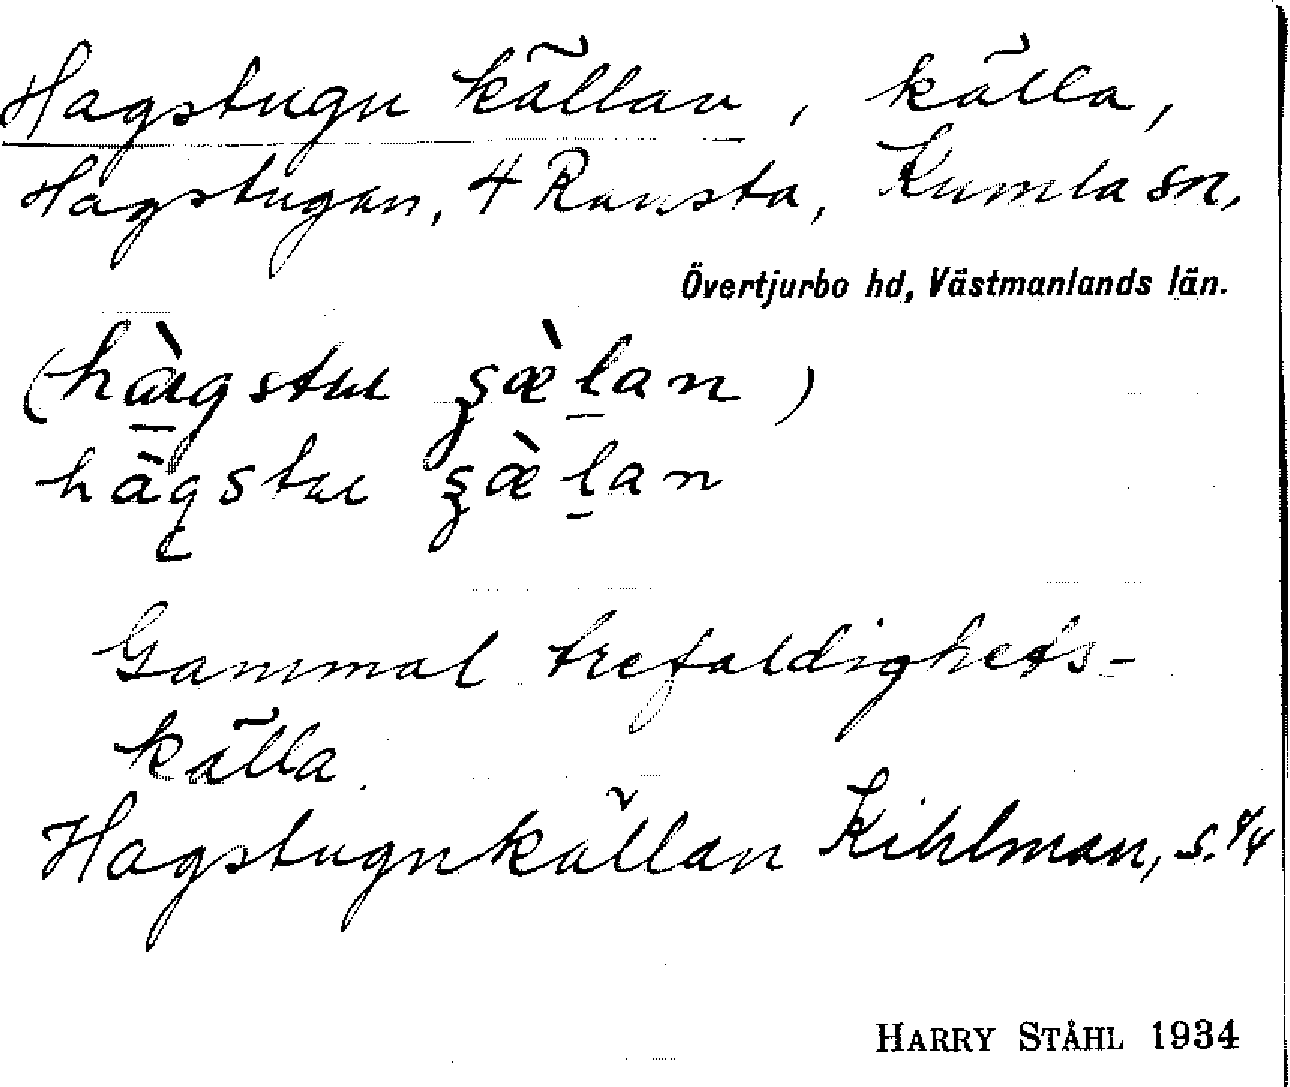 Hagstugu källan, källa,
Hagstugan, 4 Ransta, Kumla sn,
Övertjurbo hd, Västmanlands län.
Gammal trefaldighets-
källa.
Hagstugukällan Kihlman, s.
HARRY STÅHL 1934